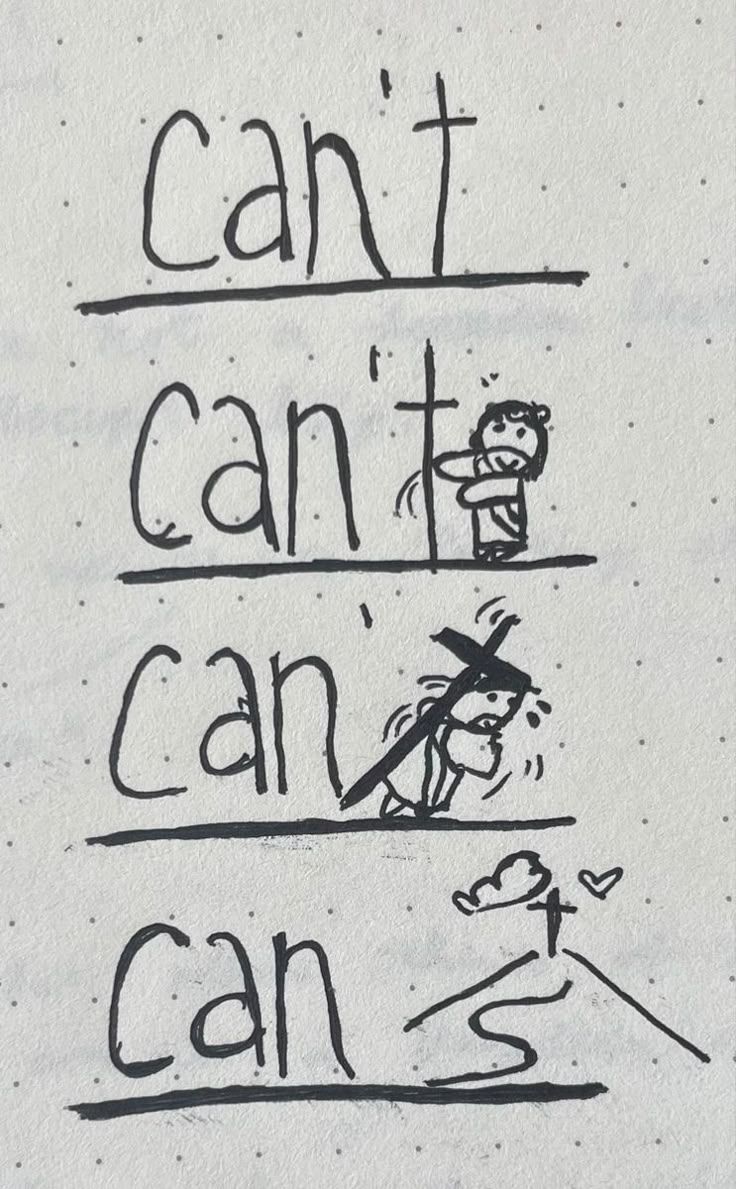 can't
can't
can'
can